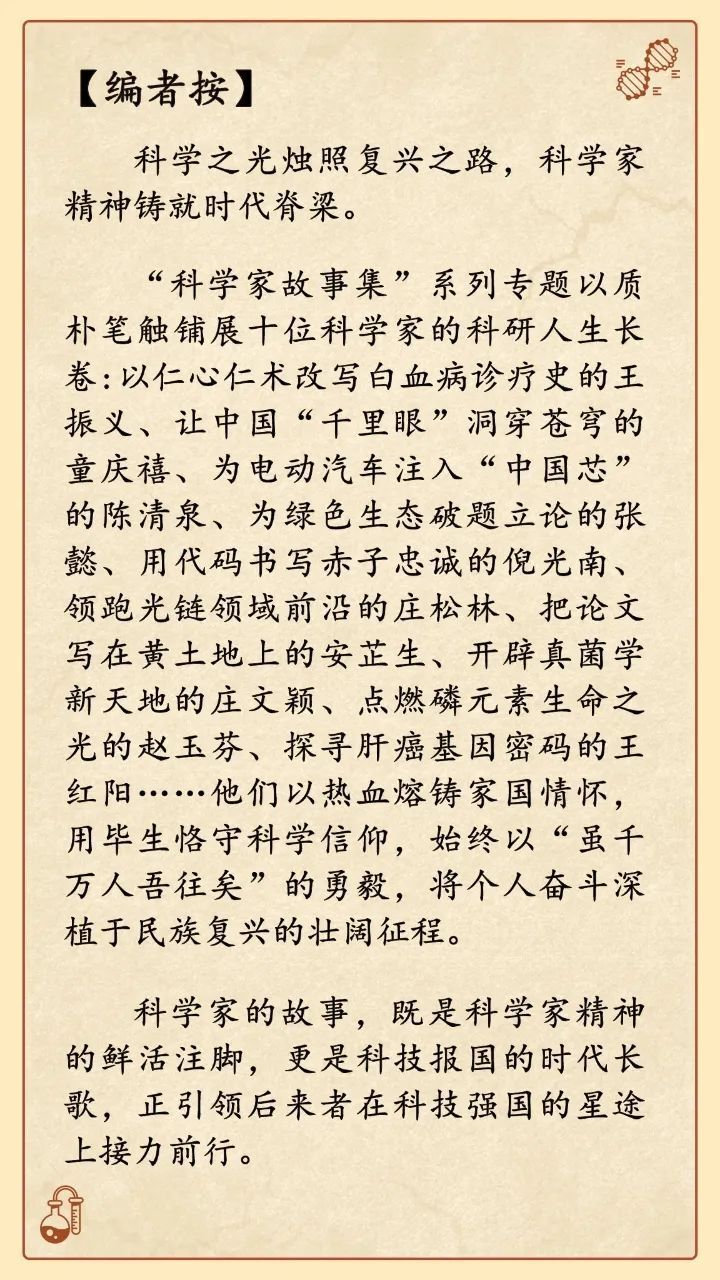 【编者按】
科学之光烛照复兴之路，科学家
精神铸就时代脊梁。
“科学家故事集”系列专题以质
朴笔触铺展十位科学家的科研人生长
卷:以仁心仁术改写白血病诊疗史的王
振义、让中国“千里眼”洞穿苍穹的
童庆禧、为电动汽车注入“中国芯”
的陈清泉、为绿色生态破题立论的张
懿、用代码书写赤子忠诚的倪光南、
领跑光链领域前沿的庄松林、把论文
写在黄土地上的安芷生、开辟真菌学
新天地的庄文颖、点燃磷元素生命之
光的赵玉芬、探寻肝癌基因密码的王
红阳……他们以热血熔铸家国情怀，
用毕生恪守科学信仰，始终以“虽千
万人吾往矣”的勇毅，将个人奋斗深
植于民族复兴的壮阔征程。
科学家的故事，既是科学家精神
的鲜活注脚，更是科技报国的时代长
歌，正引领后来者在科技强国的星途
上接力前行。